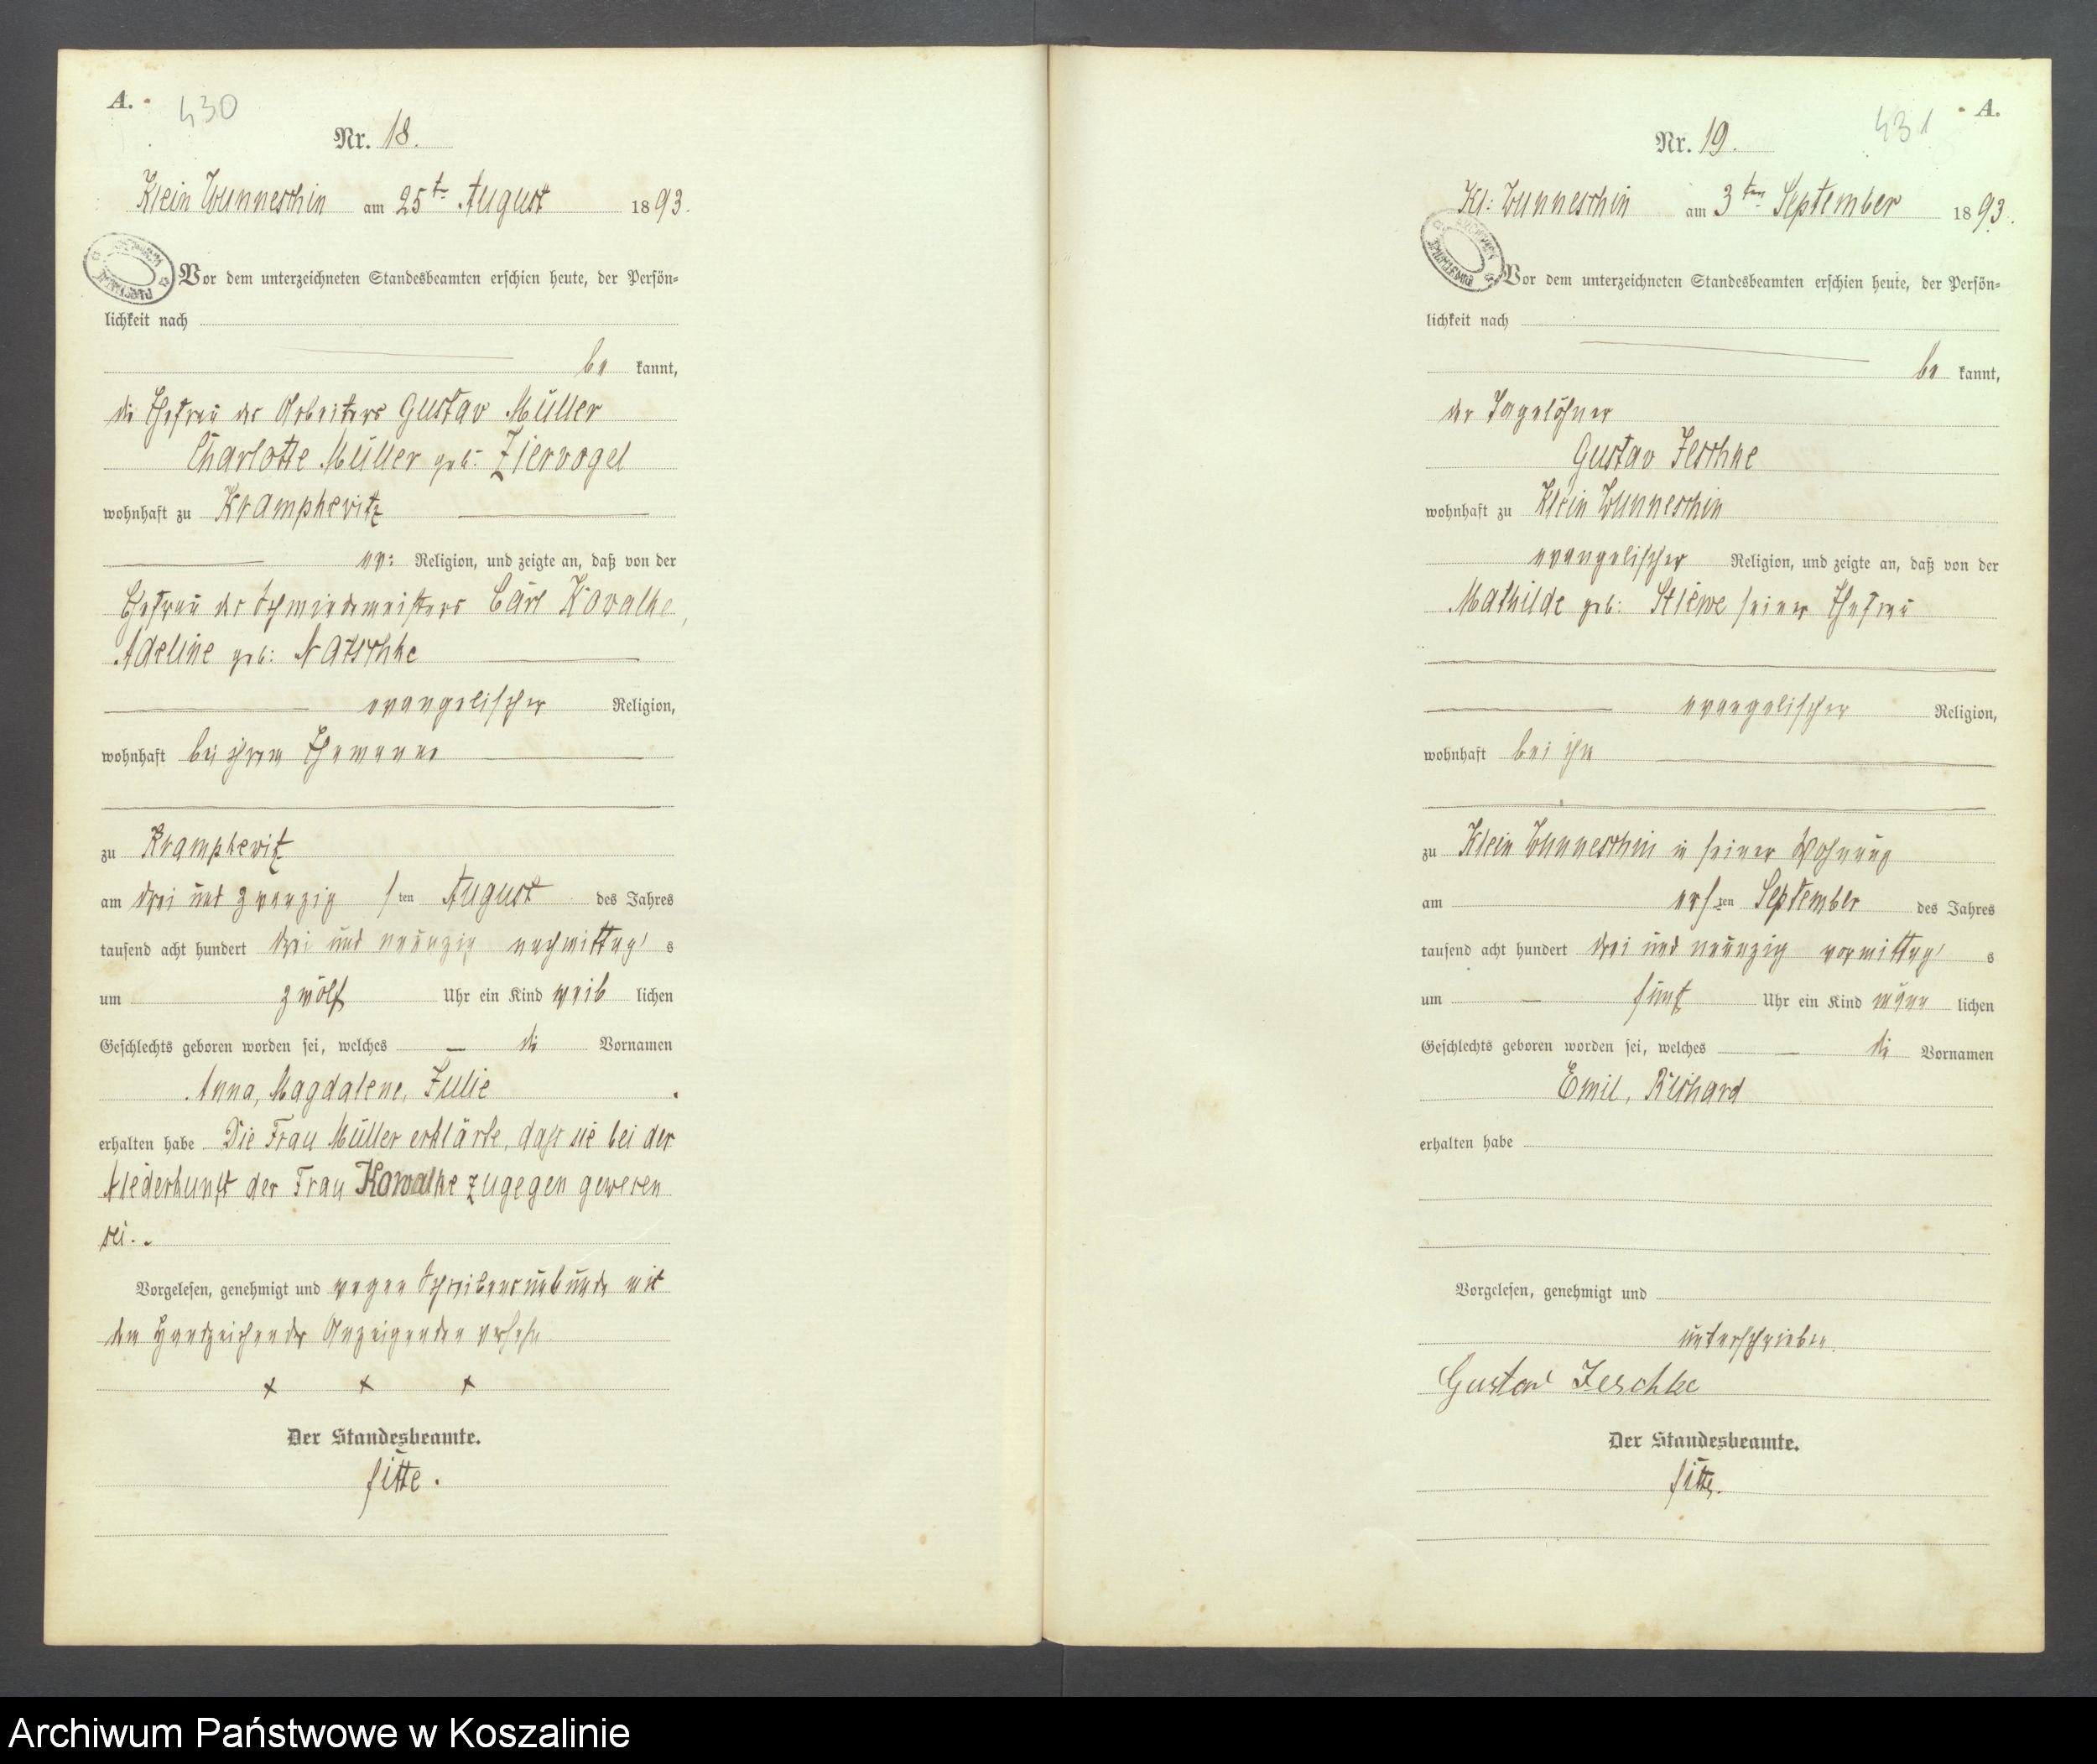 A.
430
Nr. 18.
Klein Wunneschin am 25t August 1893.
Vor dem unterzeichneten Standesbeamten erschien heute, der Persön=
lichkeit nach
be kannt,
die Ehefrau des Arbeiters Gustav Müller
Charlotte Müller geb. Ziervogel
wohnhaft zu Krampkewitz
ev: Religion, und zeigte an, daß von der
Ehefrau des Schmiedemeisters Carl Kovalke,
Adeline geb: Natschke
evangelischer Religion,
wohnhaft bei ihrem Ehemanne
zu Krampkewitz
am drei und zwanzigsten August des Jahres
tausend acht hundert drei und neunzig nachmittags
um zwölf Uhr ein Kind weiblichen
Geschlechts geboren worden sei, welches die Vornamen
Anna, Magdalene, Julie
erhalten habe Die Frau Müller erklärte, daß sie bei der
Niederkunft der Frau Kowalke zugegen gewesen
sei.
Vorgelesen, genehmigt und wegen Schreibensunkunde mit
dem Handzeichen der Anzeigenden versehn
+ + +
Der Standesbeamte.
fitte.
A.
431
Nr. 19.
Kl: Wunneschin am 3ten September 1893.
Vor dem unterzeichneten Standesbeamten erschien heute, der Persön=
lichkeit nach
be kannt,
der Tagelöhner
Gustav Jeschke
wohnhaft zu Klein Wunneschin
evangelischer Religion, und zeigte an, daß von der
Mathilde geb: Stiewe seiner Ehefrau
evangelischer Religion,
wohnhaft bei ihm
zu Klein Wunneschin in seiner Wohnung
am ersten September des Jahres
tausend acht hundert drei und neunzig vormittags
um fünf Uhr ein Kind männlichen
Geschlechts geboren worden sei, welches die Vornamen
Emil, Richard
erhalten habe
Vorgelesen, genehmigt und
unterschrieben
Gustav Jeschke
Der Standesbeamte.
fitte.
Archiwum Państwowe w Koszalinie